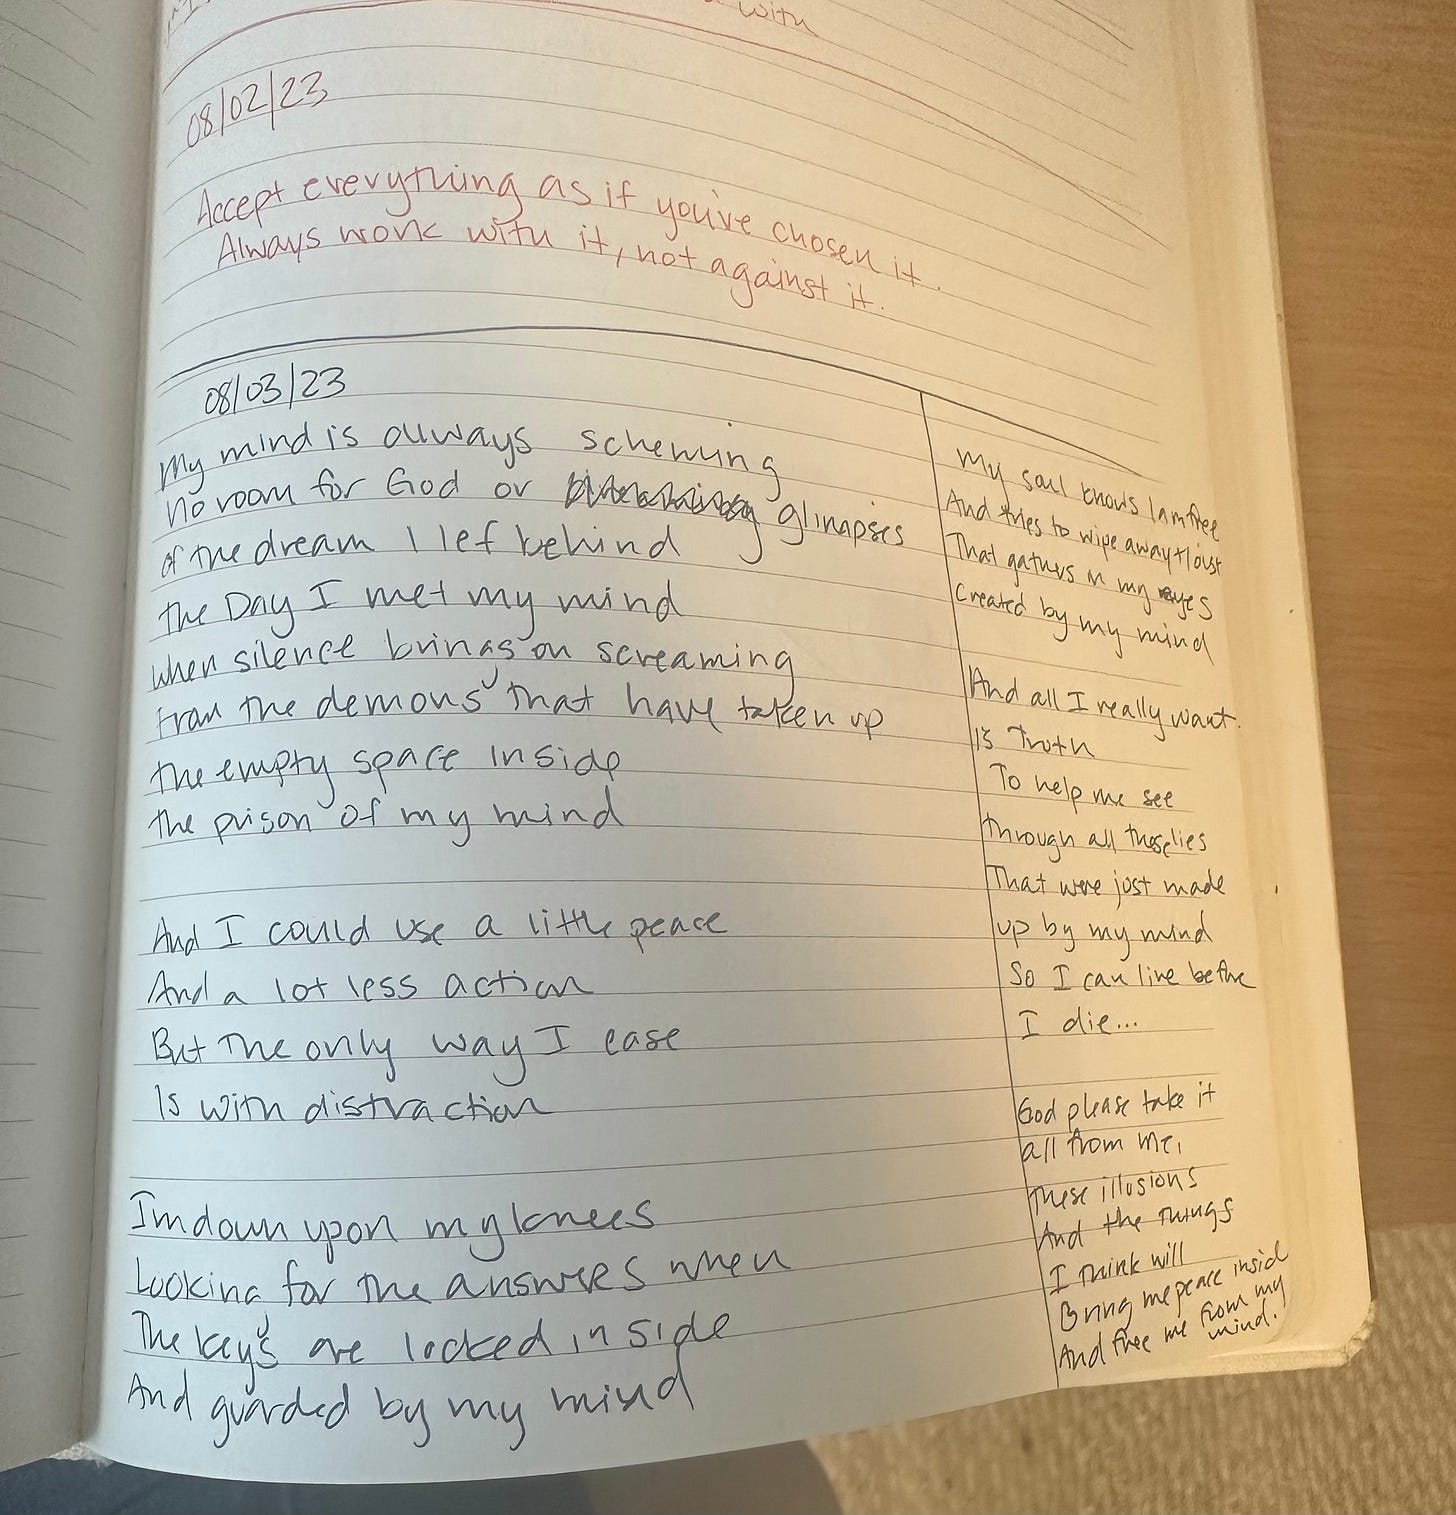 with
08/02/23
Accept everything as if you've chosen it.
Always work with it, not against it.
08/03/23
My mind is always scheming
No room for God or glimapses
of the dream I lef behind
The Day I met my mind
when silence brings on screaming
from the demons that have taken up
the empty space inside
the prison of my mind
And I could use a little peace
And a lot less action
But The only way I ease
Is with distraction
I'm down upon my knees
Looking for the answers when
The key's are locked inside
And guarded by my mind
My soul knows I am free
And tries to wipe away
That gathers in my eyes
Created by my mind
And all I really want
is Truth
To help me see
through all these lies
That were just made
up by my mind
So I can live before
I die...
God please take it
all from me,
These illusions
And the Things
I Think will
Bring me peace insid
And free me from my
mind.